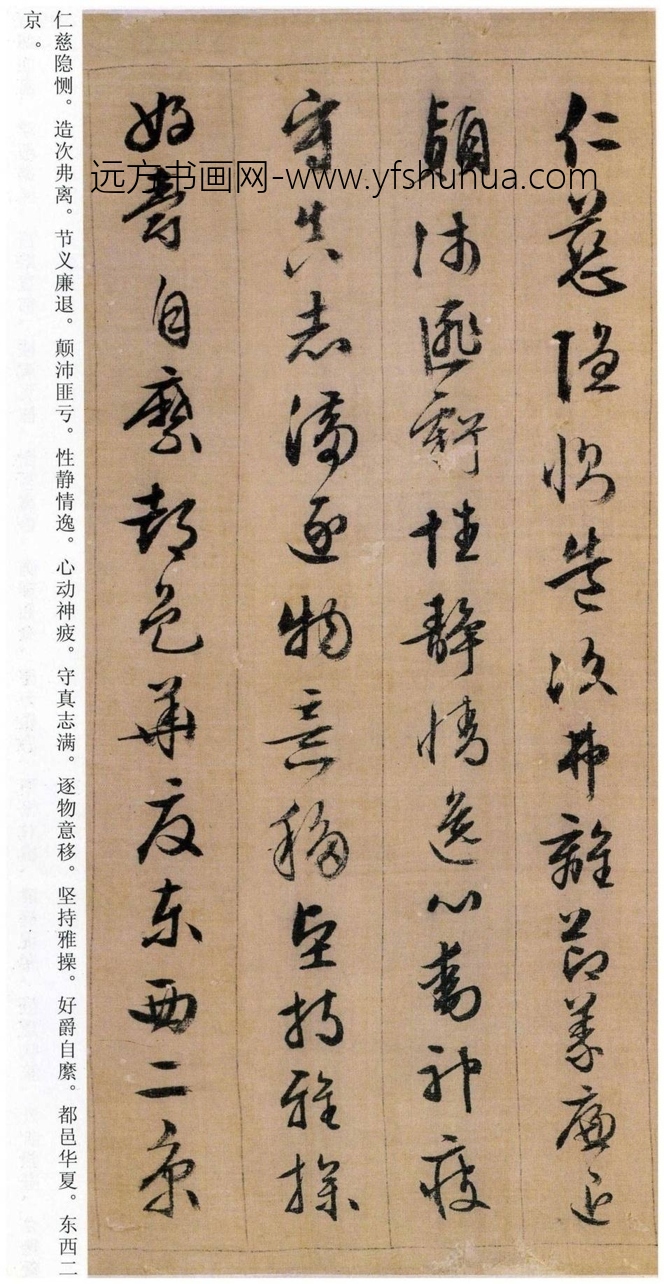 仁慈隐恻。造次弗离。节义廉退。颠沛匪亏。性静情逸。心动神疲。守真志满。逐物意移。坚持雅操。好爵自縻。都邑华夏。东西二
京。
远方书画网-www.yfshuhua.com
仁慈隱惻造次弗離節義廉退
顛沛匪虧性靜情逸心動神疲
守真志滿逐物意移堅持雅操
好爵自縻都邑華夏東西二京